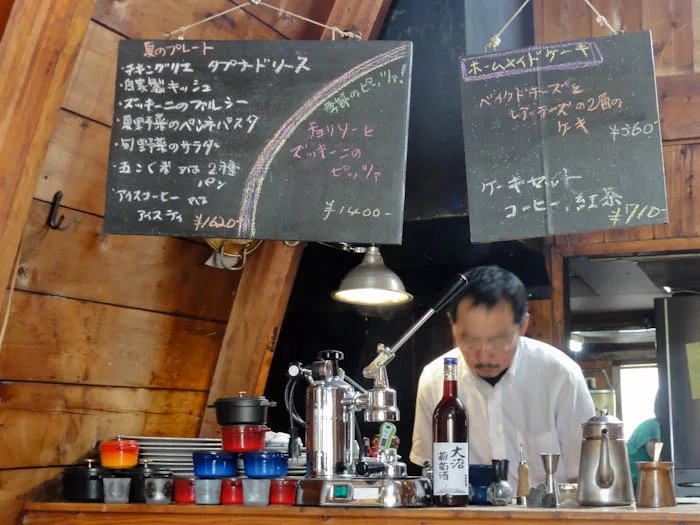 夏のプレート
・チキングリエ タプナードソース
・自家製キッシュ
・ズッキーニのファルシー
・夏野菜のペンネパスタ
・旬野菜のサラダ
・五こく米 又は 2種パン
アイスコーヒー 又は
アイスティ
¥1620-
季節のピッツァ
チョリソーと
ズッキーニの
ピッツァ
¥1400-
ホームメイドケーキ
ベイクドチーズと
レアチーズの2層の
ケーキ
¥360-
ケーキセット
コーヒー、紅茶
¥710-
大沼
葡萄酒